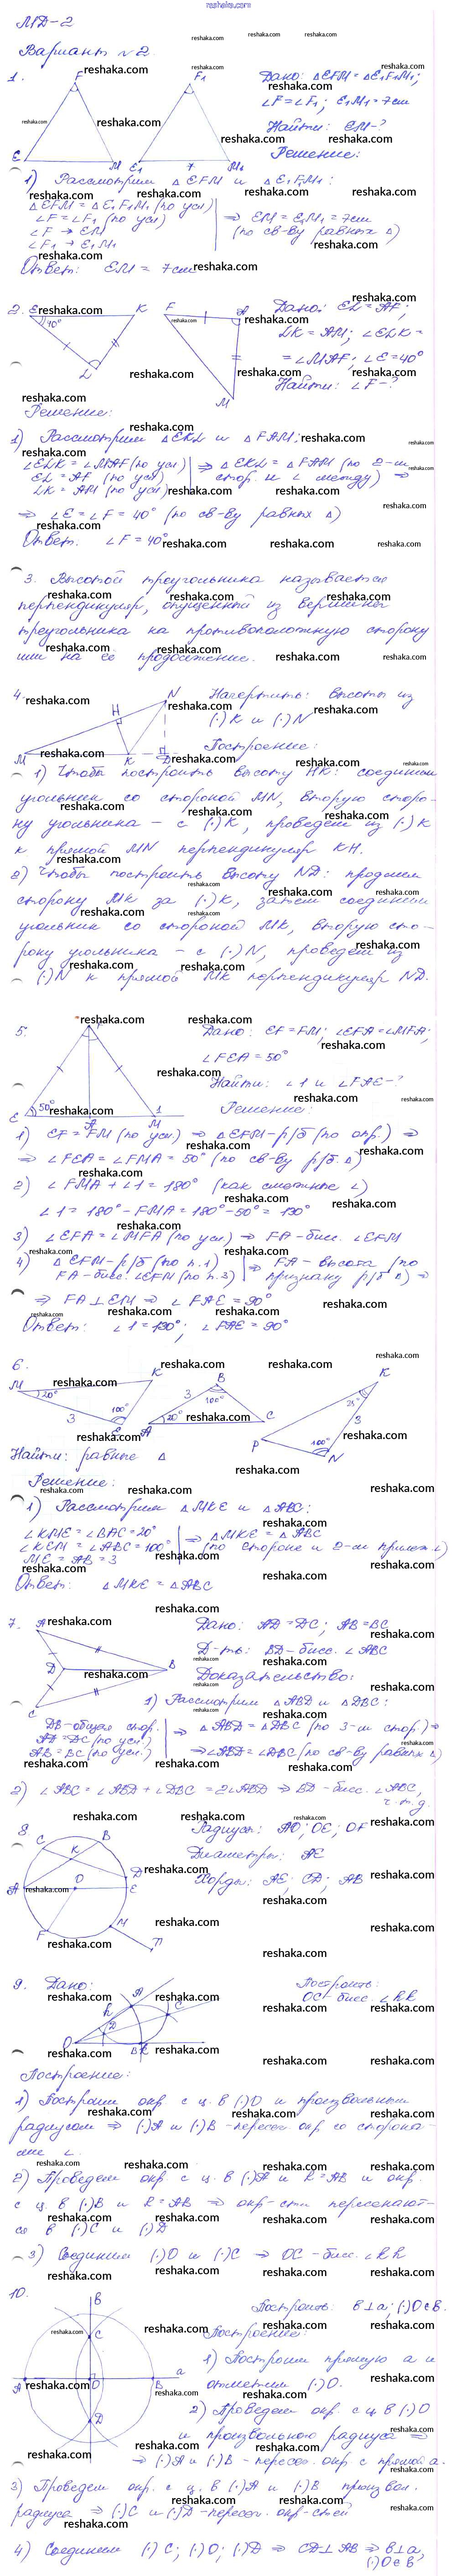 reshaka.com
МД-2
Вариант №2.
1.
F
F1
E
M
E1
7
M1
Дано: △EFM = △E1F1M1;
∠F = ∠F1; E1M1 = 7см
Найти: EM-?
Решение:
1) Рассмотрим △EFM и △E1F1M1:
△EFM = △E1F1M1 (по усл)
∠F = ∠F1 (по усл)
∠F → EM
∠F1 → E1M1
⇒ EM = E1M1 = 7см
(по св-ву равных △)
Ответ: EM = 7см
2.
E
40°
K
L
F
A
M
Дано: EL = AF;
LK = AM; ∠ELK =
= ∠MAF; ∠E = 40°
Найти: ∠F-?
Решение:
1) Рассмотрим △EKL и △FAM:
∠ELK = ∠MAF (по усл)
EL = AF (по усл)
LK = AM (по усл)
⇒ △EKL = △FAM (по 2-м
стор. и ∠ между) ⇒
⇒ ∠E = ∠F = 40° (по св-ву равных △)
Ответ: ∠F = 40°
3. Высотой треугольника называется
перпендикуляр, опущенный из вершины
треугольника на противоположную сторону
или на её продолжение.
4.
N
H
M
K
D
Начертить: высоты из
(·)K и (·)N
Построение:
1) Чтобы построить высоту HK: соединим
угольник со стороной MN, вторую сторо-
ну угольника – с (·)K, проведем из (·)K
к прямой MN перпендикуляр KH.
2) Чтобы построить высоту ND: продлим
сторону MK за (·)K, затем соединим
угольник со стороной MK, вторую сто-
рону угольника – с (·)N, проведем из
(·)N к прямой MK перпендикуляр ND.
5.
F
E
50°
A
M
1
Дано: EF = FM; ∠EFA = ∠MFA;
∠FEA = 50°
Найти: ∠1 и ∠FAE-?
Решение:
1) EF = FM (по усл.) ⇒ △EFM-р/б (по опр.) ⇒
⇒ ∠FEA = ∠FMA = 50° (по св-ву р/б △)
2) ∠FMA + ∠1 = 180° (как смежные ∠)
∠1 = 180° - FMA = 180° - 50° = 130°
3) ∠EFA = ∠MFA (по усл) ⇒ FA - бисс. ∠EFM
4) △EFM - р/б (по п.1)
FA - бисс. ∠EFM (по п.3)
⇒ FA - высота (по
признаку р/б △) ⇒
⇒ FA ⊥ EM ⇒ ∠FAE = 90°
Ответ: ∠1 = 130°; ∠FAE = 90°
6.
M
20°
K
3
100°
E
A
20°
3
B
100°
C
K
21°
3
P
100°
N
Найти: равные △
Решение:
1) Рассмотрим △MKE и △ABC:
∠KME = ∠BAC = 20°
∠KEM = ∠ABC = 100°
ME = AB = 3
⇒ △MKE = △ABC
(по стороне и 2-м прилеж ∠)
Ответ: △MKE = △ABC
7.
A
D
B
C
Дано: AD = DC; AB = BC
Д-ть: BD - бисс. ∠ABC
Доказательство:
1) Рассмотрим △ABD и △DBC:
DB - общая стор.
AD = DC (по усл.)
AB = BC (по усл.)
⇒ △ABD = △DBC (по 3-м стор.) ⇒
⇒ ∠ABD = ∠DBC (по св-ву равных △)
2) ∠ABC = ∠ABD + ∠DBC = 2∠ABD ⇒ BD - бисс. ∠ABC,
ч.т.д.
8.
C
B
K
D
A
O
E
F
M
Радиусы: AO; OE; OF
Диаметры: AE
Хорды: AE; CD; AB
9. Дано:
O
A
C
D
B
Построить:
OC - бисс. ∠hk
Построение:
1) Построим окр с ц. в (·)O и произвольным
радиусом ⇒ (·)A и (·)B - пересеч. окр со сторона-
ми ∠.
2) Проведем окр. с ц. в (·)A и R = AB и окр.
с ц. в (·)B и R = AB ⇒ окр-сти пересекают-
ся в (·)C и (·)D
3) Соединим (·)O и (·)C ⇒ OC - бисс. ∠hk
10.
в
C
A
O
B
a
D
Построить: в⊥a; (·)O∈в.
Построение:
1) Построим прямую a и
отметим (·)O.
2) Проведем окр. с ц. в (·)O
и произвольного радиуса ⇒
⇒ (·)A и (·)B - пересеч. окр с прямой a.
3) Проведем окр. с ц. в (·)A и (·)B произвол.
радиуса ⇒ (·)C и (·)D - пересеч. окр-стей
4) Соединим (·)C; (·)O; (·)D ⇒ CD⊥AB ⇒ в⊥a,
(·)O∈в